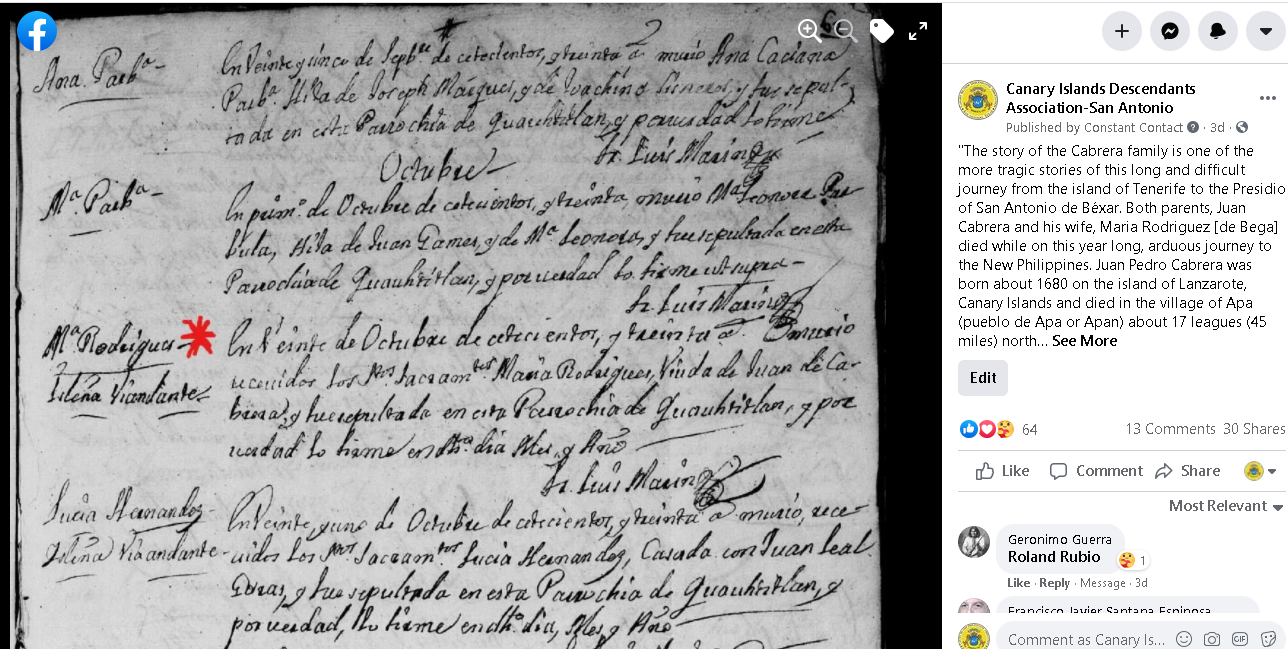 6
Ana. Parbª
En Veinte y sinco de Sepbre de setecientos, y treinta aˢ murio Ana Caciana
Parbª. Hila de Joseph Marques, y de Joachina Lisneros, y fue sepul-
tada en esta Parrochia de Quauhtitlan, y porverdad lo firme
fr. Luis Marin
Octubre
Mª Parbª
En primº. de Octubre de setecientos, y treinta, murio Mª Leonora Par
bula, Hila de Juan Games, y de Mª Leonora, y fue sepultada en esta
Parrochia de Quauhtitlan, y porverdad lo firme ut supra
fr. Luis Marin
Mª Rodrigues
Isleña Viandante
En Veinte de Octubre de setecientos, y treinta aˢ. murio
recevidos los Stos. Sacramtos Maria Rodrigues, Viuda de Juan de Ca-
brera, y fue sepultada en esta Parrochia de Quauhtitlan, y por
verdad lo firme en dho. dia, Mes, y Año
fr. Luis Marin
Lucia Hernandez
Isleña Viandante
En Veinte, y uno de Octubre de setecientos, y treinta aˢ murio, rece-
vidos los Stos Sacramtos Lucia Hernandez, Casada con Juan Leal
Goras, y fue sepultada en esta Parrochia de Quauhtitlan, y
por verdad, lo firme en dho. dia, Mes, y Año
Canary Islands Descendants
Association-San Antonio
Published by Constant Contact · 3d ·
"The story of the Cabrera family is one of the
more tragic stories of this long and difficult
journey from the island of Tenerife to the Presidio
of San Antonio de Béxar. Both parents, Juan
Cabrera and his wife, Maria Rodriguez [de Bega]
died while on this year long, arduous journey to
the New Philippines. Juan Pedro Cabrera was
born about 1680 on the island of Lanzarote,
Canary Islands and died in the village of Apa
(pueblo de Apa or Apan) about 17 leagues (45
miles) north... See More
Edit
64 13 Comments 30 Shares
Like Comment Share
Most Relevant
Geronimo Guerra
Roland Rubio
1
Like · Reply · Message · 3d
Francisco Javier Santana Espinosa
Comment as Canary Is...
GIF